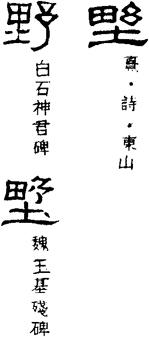 㙒
熹・詩・東山
野
白石神君碑
㙒
魏王基殘碑